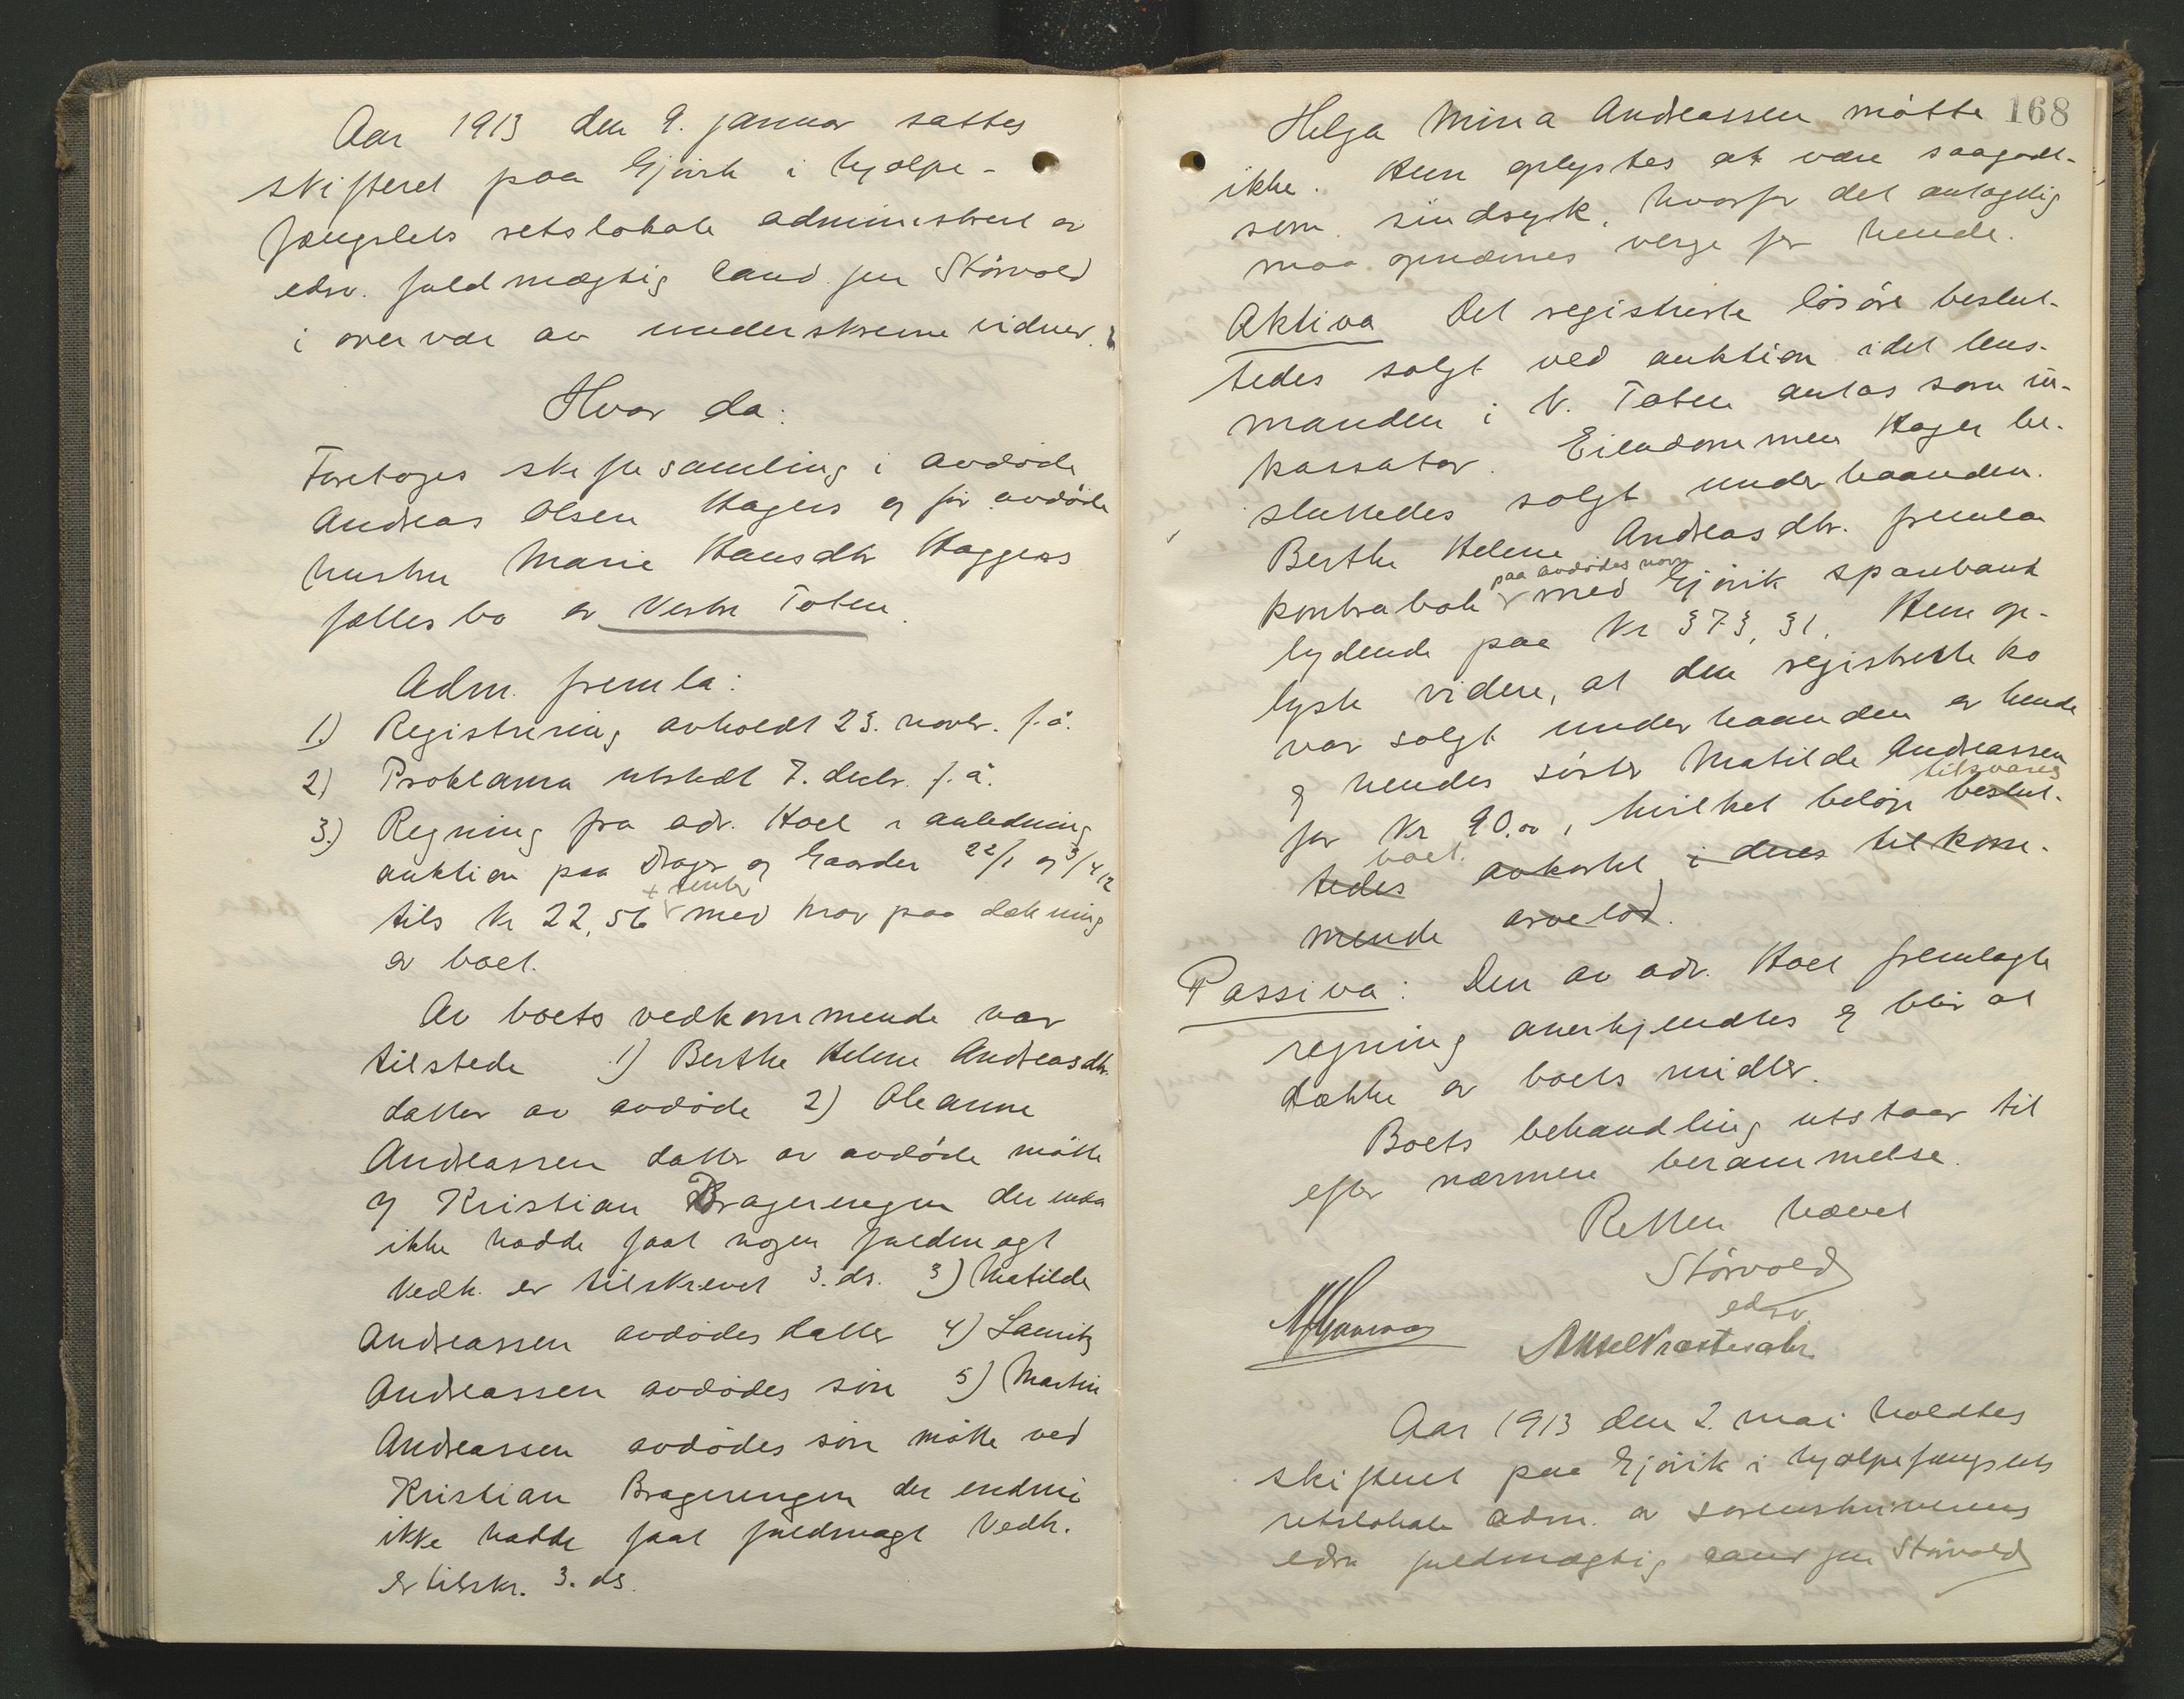 Aar 1913 den 9. januar sattes
skifteret paa Gjøvik i hjælpe-
fængslets retslokale administrert av
edsv. fuldmægtig cand. jur Størvold
i overvær av underskrevne vidner.
Hvor da:
Foretoges skiftesamling i avdøde
Andreas Olsen Hagens og før avdøde
hustru Marie Hansdtr Haggens
fællesbo av Vestre Toten.
Adm. fremla:
1) Registrering avholdt 23. novbr. f.å.
2) Proklama utstedt 7. decbr. f.å.
3.) Regning fra adv. Hoel i anledning
auktion paa Drager og Gaarder 22/1 og 3/4 12
+ renter
tils Kr 22,56 med krav paa dækning
av boet.
Av boets vedkommende var
tilstede 1) Berthe Helene Andreasdtr.
datter av avdøde 2) Oleanne
Andreassen datter av avdøde møtte
v Kristian Bragerengen der endnu
ikke hadde faat nogen fuldmagt
Vedk. er tilskrevet 3. ds. 3) Matilde
Andreassen avdødes datter 4) Lauritz
Andreassen avdødes søn 5) Martin
Andreassen avdødes søn møtte ved
Kristian Bragerengen der endnu
ikke hadde faat fuldmagt Vedk.
er tilskr. 3. ds.
168
Helga Mina Andreassen møtte
ikke. Hun oplystes at være saagodt-
som sindsyk, hvorfor det antagelig
maa opnævnes verge for hende.
Aktiva Det registrerte løsøre beslut-
tedes solgt ved auktion idet lens-
manden i V. Toten antas som in-
kassator. Eiendommen Hagen be-
sluttedes solgt underhaanden.
Berthe Helene Andreasdtr. fremla
paa avdødes navn
kontrabok med Gjøvik sparebank
lydende paa Kr 373,31. Hun op-
lyste videre, at den registrerte ko
var solgt underhaanden av hende
og hendes søster Matilde Andreassen
tilsvares
for Kr 90.00, hvilket beløp beslut-
boet.
tedes avkortet i deres tilkom-
mende arvelod.
Passiva: Den av adv. Hoel fremlagte
regning anerkjendtes og blir at
dække av boets midler.
Boets behandling utstaar til
efter nærmere berammelse.
Retten hævet
Størvold
edsv.
Aar 1913 den 2. mai holdtes
skifteret paa Gjøvik i hjælpefængslets
retslokale adm. av sorenskriverens
edsv fuldmægtig cand jur Størvold